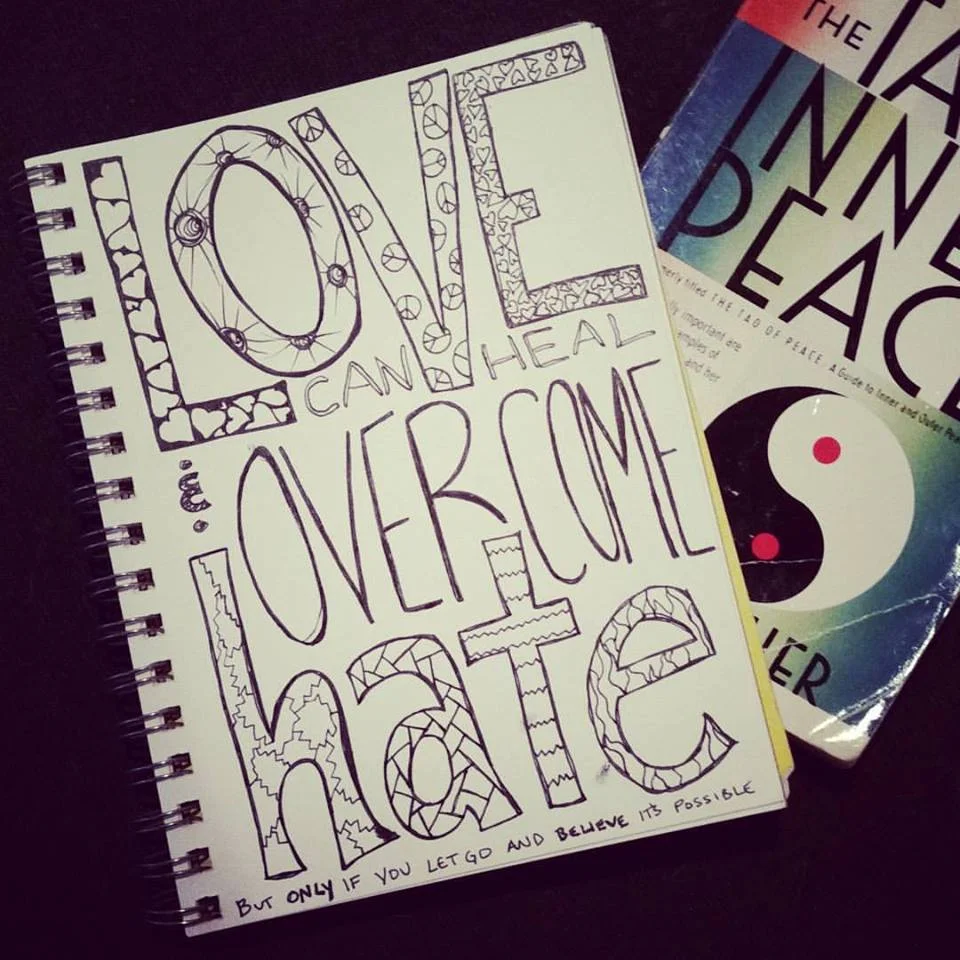 LOVE
CAN HEAL
& OVERCOME
hate
BUT ONLY IF YOU LET GO AND BELIEVE IT'S POSSIBLE
THE TA
INNE
PEAC
merly titled THE TAO OF PEACE. A Guide to Inner and Outer Pea
lly important are
amples of
and her
HER